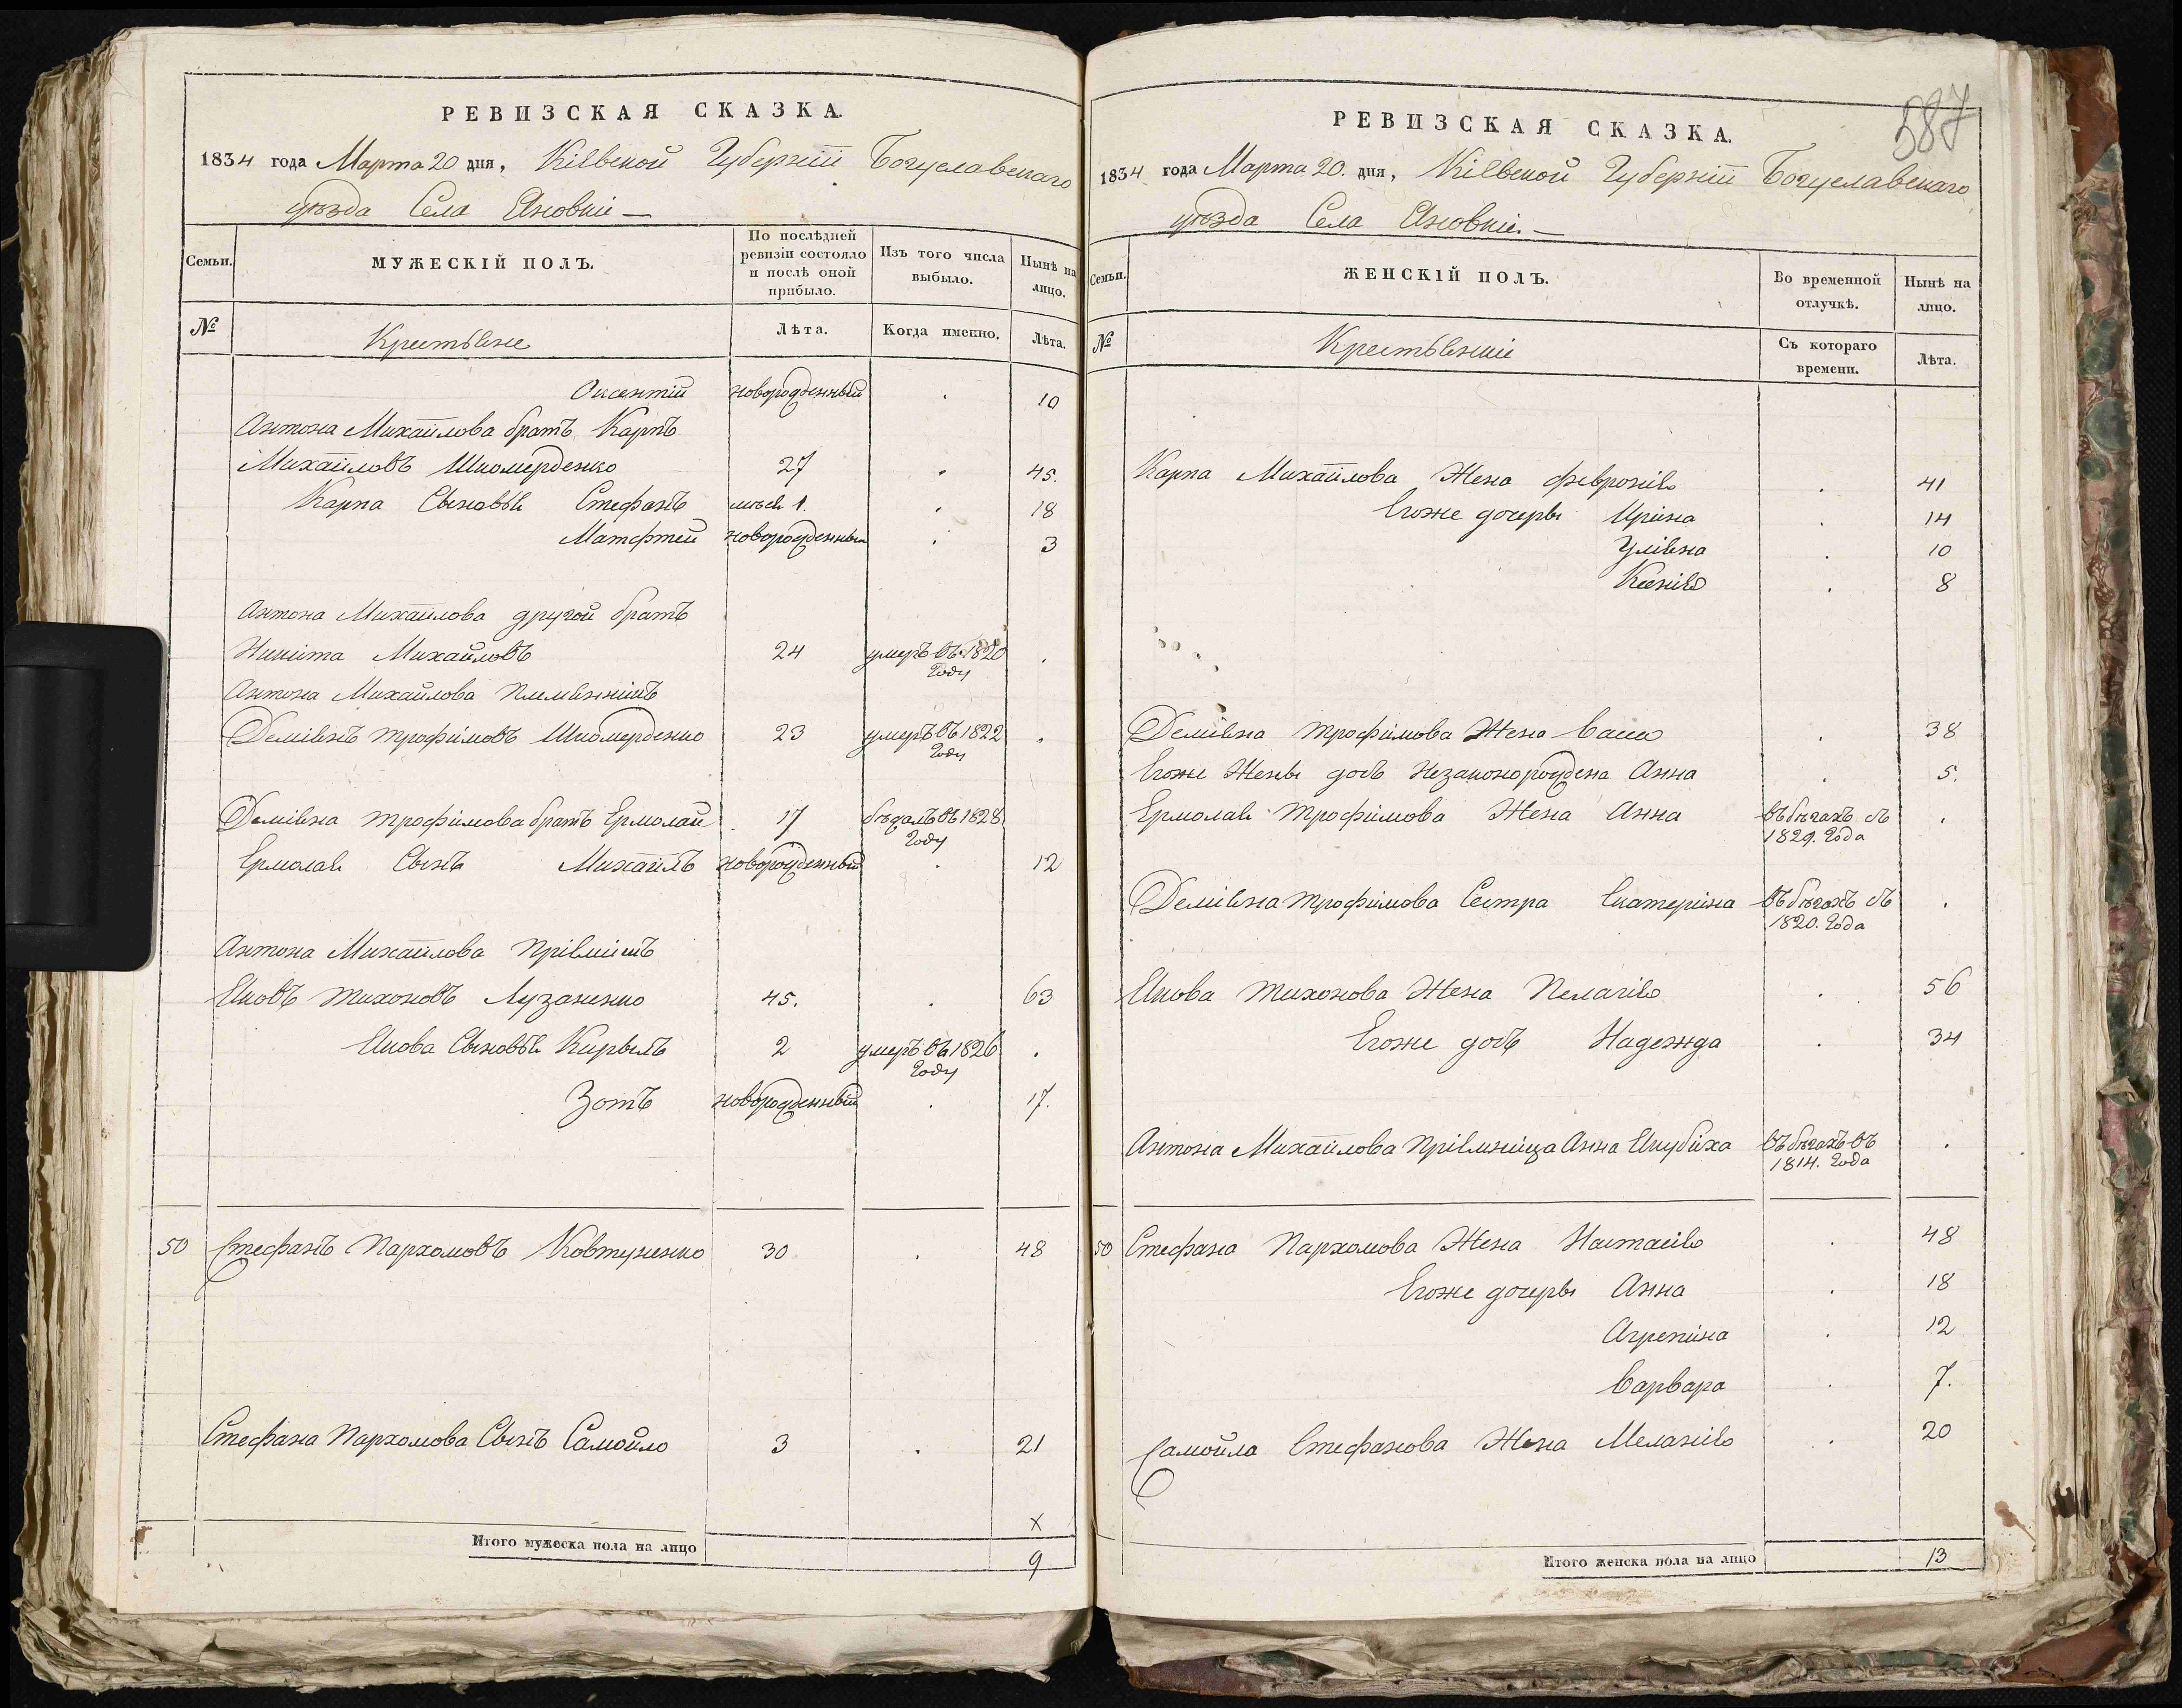 РЕВИЗСКАЯ СКАЗКА.
1834 года Марта 20 дня, Кіевской Губерніи Богуславскаго
уѣзда Села Яновки
Семьи.
МУЖЕСКІЙ ПОЛЪ.
По послѣдней ревизіи состояло и послѣ оной прибыло.
Изъ того числа выбыло.
Нынѣ на лицо.
№
Крестьяне
Лѣта.
Когда именно.
Лѣта.
Оксентій новорожденный 10
Антона Михайлова братъ Карпъ
Михайловъ Шкомерденко 27 45.
Карпа Сыновья Стефанъ 1. 18
Матфтей новорожденный 3
Антона Михайлова другой братъ
Никита Михайловъ 24 умеръ въ 1820
Году
Антона Михайлова племянникъ
Деміянъ Трофимовъ Шкомерденко 23 умеръ въ 1822
Году
Деміяна Трофимова братъ Ермолай 17 бѣжалъ въ 1828
Году
Ермолая Сынъ Михайлъ новорожденный 12
Антона Михайлова пріймитъ
Яковъ Тихоновъ Лузаненко 45. 63
Якова Сыновья Кирылъ 2 умеръ въ 1826
Году
Зотъ новорожденный 17.
50 Стефанъ Пархомовъ Ковтуненко 30 48
Стефана Пархомова Сынъ Самойло 3 21
х
Итого мужеска пола на лицо 9
587
РЕВИЗСКАЯ СКАЗКА.
1834 года Марта 20. дня, Кіевской Губерніи Богуславскаго
уѣзда Села Яновки.
Семьи.
ЖЕНСКІЙ ПОЛЪ.
Во временной отлучкѣ.
Нынѣ на лицо.
№
Крестьянки
Съ котораго времени.
Лѣта.
Карпа Михайлова Жена Февронія 41
Егоже дочеры Ирина 14
Уліяна 10
Ксенія 8
Деміяна Трофимова Жена Васса 38
Егоже Жены дочь незаконорождена Анна 5.
Ермолая Трофимова Жена Анна въ бѣгахъ съ
1829. Года
Деміяна Трофимова Сестра Екатерина въ бѣгахъ съ
1820. Года
Якова Тихонова Жена Пелагія 56
Егоже дочь Надежда 34
Антона Михайлова пріймница Анна Якубиха въ бѣгахъ въ
1814. Года
50 Стефана Пархомова Жена Настасія 48
Егоже дочеры Анна 18
Агрепина 12
Варвара 7.
Самойла Стефанова Жена Меланія 20
Итого женска пола на лицо 13